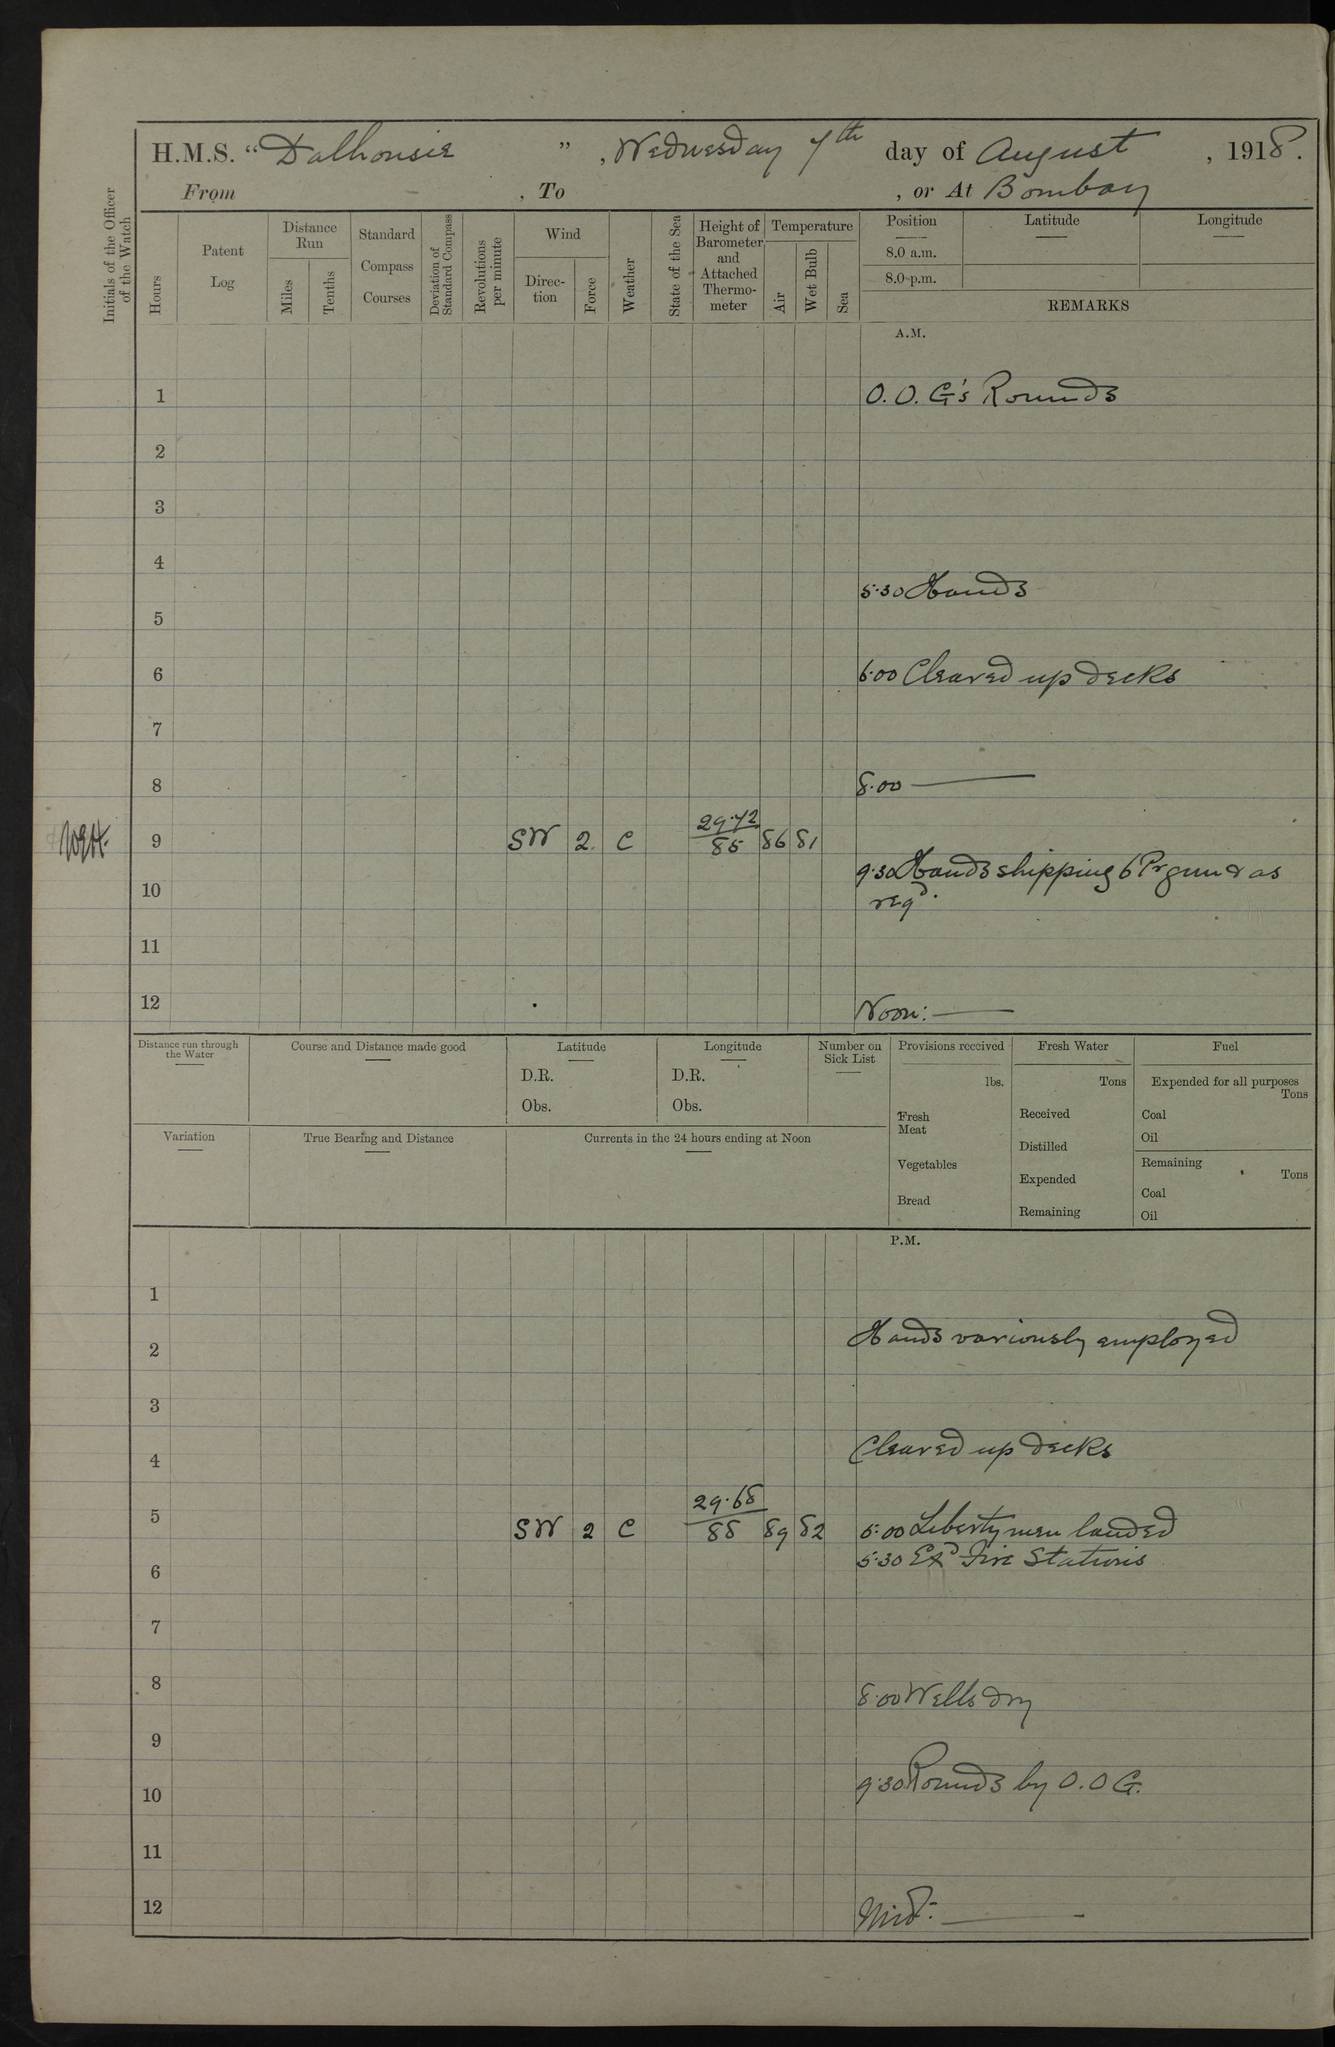 H.M.S. "Dalhousie", Wednesday 7th day of August, 1918.
From , To , or At Bombay
Initials of the Officer of the Watch
Hours
Patent Log
Distance Run
Miles
Tenths
Standard Compass Courses
Deviation of Standard Compass
Revolutions per minute
Wind
Direc-tion
Force
Weather
State of the Sea
Height of Barometer and Attached Thermo-meter
Temperature
Air
Wet Bulb
Sea
Position Latitude Longitude
8.0 a.m.
8.0 p.m.
REMARKS
A.M.
1 O.O.G's Rounds
2
3
4
5.30 Hands
5
6 6.00 Cleared up decks
7
8 8.00
9 SW 2 C 29.72/85 86 81
9.30 Hands shipping 6 Pr gun & as
10 reqd.
11
12 Noon:
Distance run through the Water
Course and Distance made good
Latitude
D.R.
Obs.
Longitude
D.R.
Obs.
Number on Sick List
Provisions received
lbs.
Fresh Meat
Vegetables
Bread
Fresh Water
Tons
Received
Distilled
Expended
Remaining
Fuel
Expended for all purposes
Tons
Coal
Oil
Remaining
Tons
Coal
Oil
Variation
True Bearing and Distance
Currents in the 24 hours ending at Noon
P.M.
1
2 Hands variously employed
3
4 Cleared up decks
5 SW 2 C 29.68/88 89 82 5.00 Liberty men landed
5.30 Exd Fire Stations
6
7
8 8.00 Wells dry
9
10 9.30 Rounds by O.O.G.
11
12 Midt: